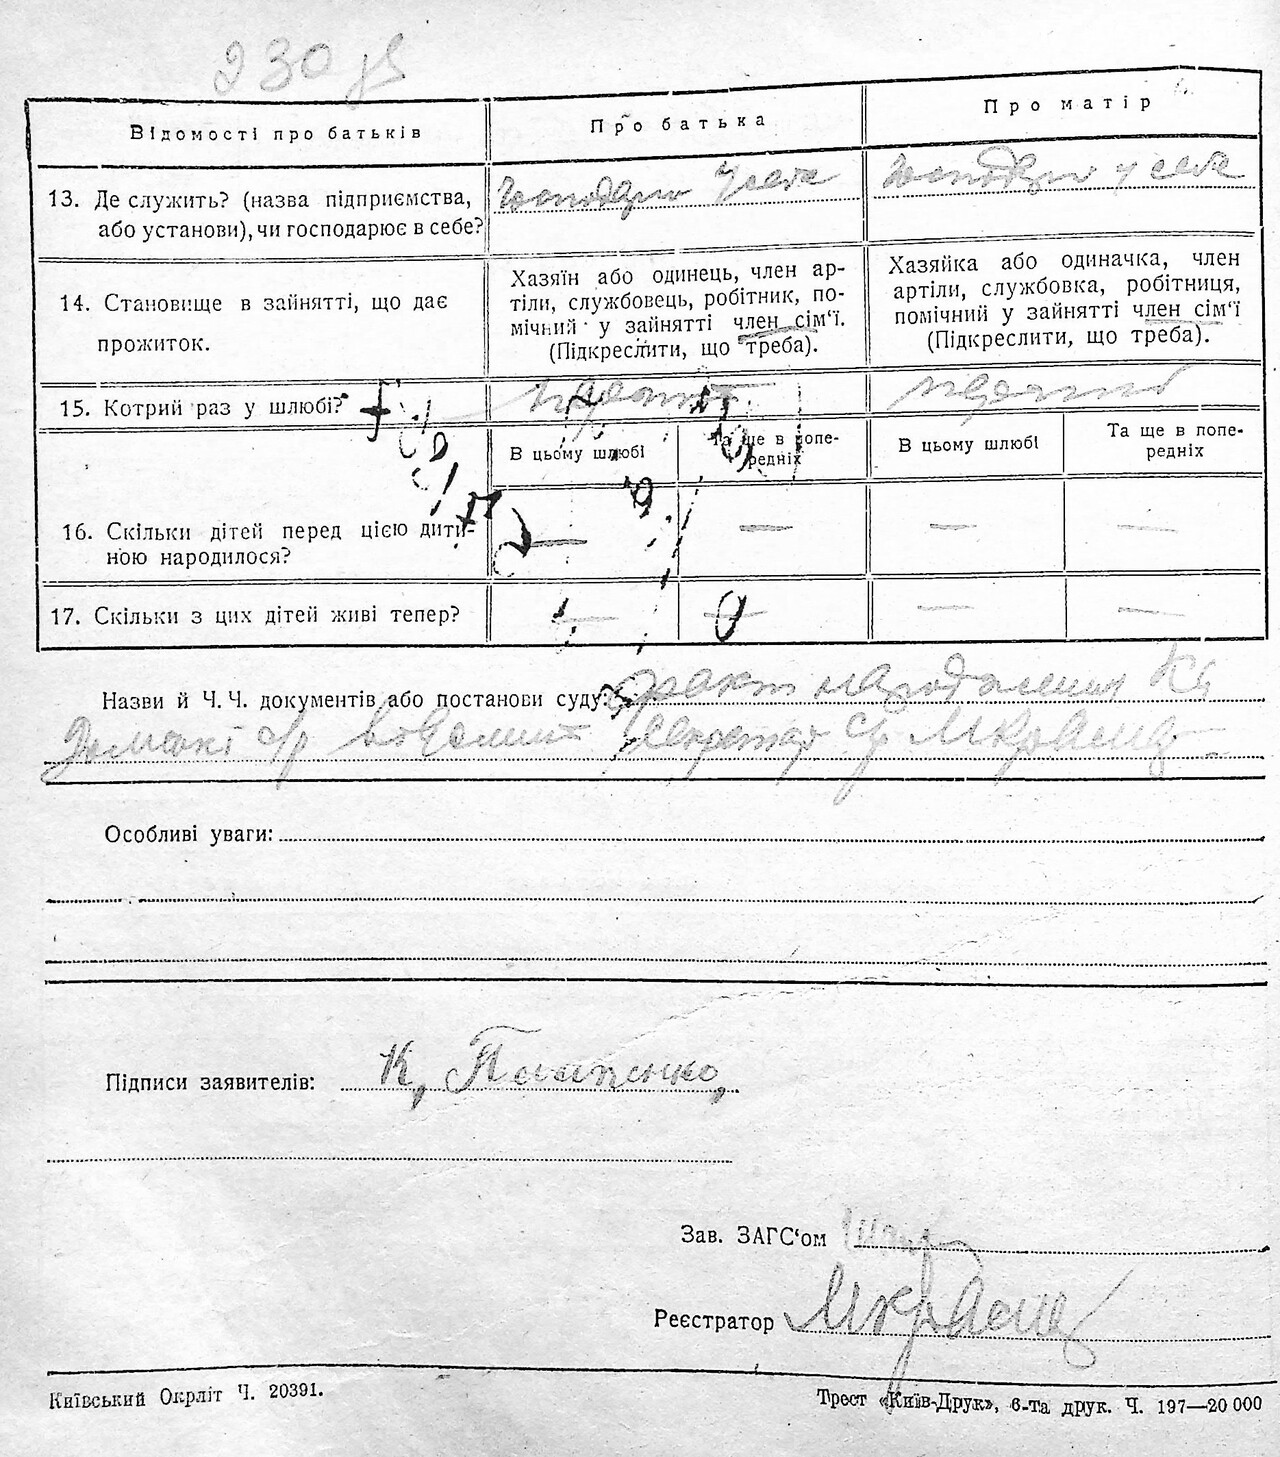 230 зв
Відомості про батьків
Про батька
Про матір
13. Де служить? (назва підприємства,
або установи), чи господарює в себе?
господарює у себе
господарює у себе
14. Становище в зайнятті, що дає
прожиток.
Хазяїн або одинець, член ар-
тіли, службовець, робітник, по-
мічний у зайнятті член сім‘ї.
(Підкреслити, що треба).
Хазяйка або одиначка, член
артіли, службовка, робітниця,
помічний у зайнятті член сім‘ї
(Підкреслити, що треба).
15. Котрий раз у шлюбі?
В цьому шлюбі
Та ще в попе-
редніх
В цьому шлюбі
Та ще в попе-
редніх
16. Скільки дітей перед цією дити-
ною народилося?
— — — —
17. Скільки з цих дітей живі тепер?
— — — —
Назви й Ч. Ч. документів або постанови суду: факт народження
с/р секретар с/р
Особливі уваги:
Підписи заявителів: К,
Зав. ЗАГС‘ом
Реєстратор
Київський Окрліт Ч. 20391.
Трест «Київ-Друк», 6-та друк. Ч. 197—20 000